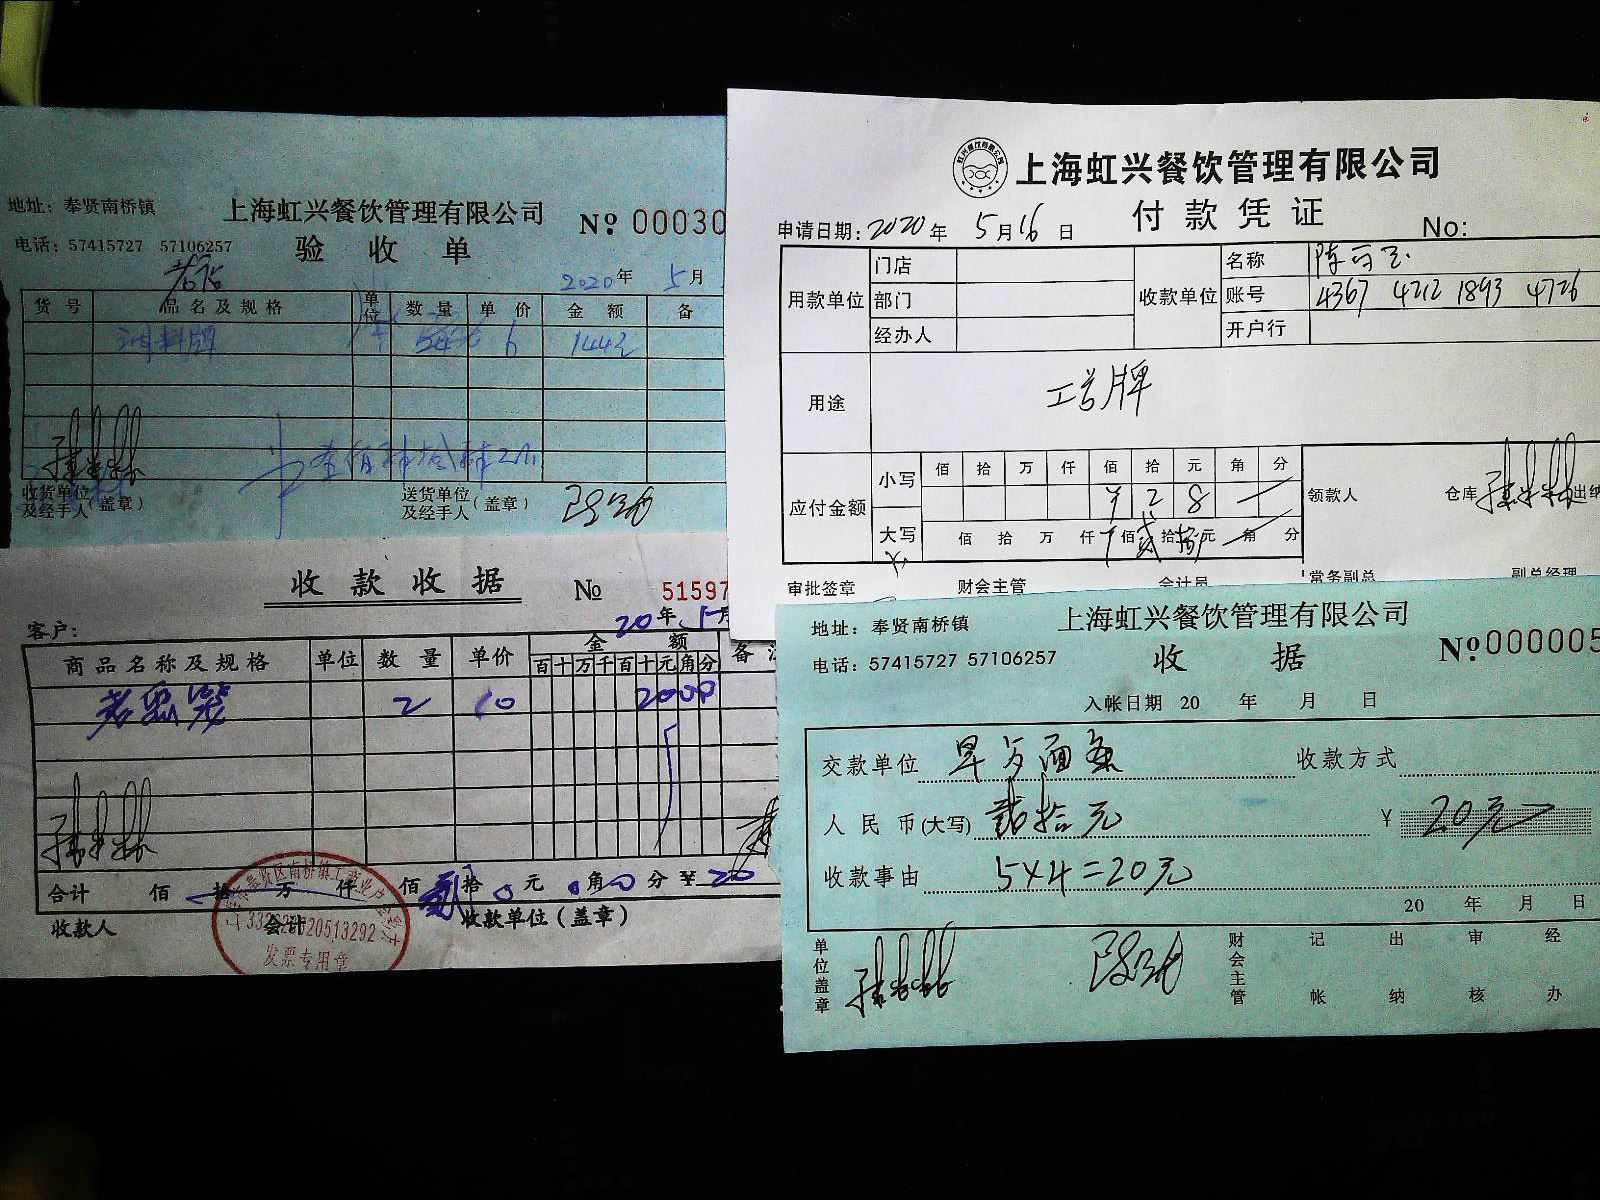 地址：奉贤南桥镇 上海虹兴餐饮管理有限公司 № 00030
电话：57415727 57106257 验收单
2020年 5月
货号 品名及规格 单位 数量 单价 金额 备
6 144元
收货单位及经手人（盖章） 送货单位及经手人（盖章）
收款收据 № 51597
客户： 20年 5月
商品名称及规格 单位 数量 单价 金额 备
百 十 万 千 百 十 元 角 分
2 10 2000
合计 佰 拾 万 仟 佰 贰拾 0元 0角 0分 ¥ 20
收款人 会计 收款单位（盖章）
发票专用章
上海虹兴餐饮管理有限公司
付款凭证
申请日期：2020年 5月16日 No:
用款单位 门店 收款单位 名称
部门 账号 4367 4212 1893 4726
经办人 开户行
用途 工号牌
应付金额 小写 佰 拾 万 仟 佰 拾 元 角 分
¥ 2 8
大写 佰 拾 万 仟 佰 贰拾 捌元 角 分
领款人 仓库 出纳
审批签章 财会主管 会计员 常务副总 副总经理
地址：奉贤南桥镇 上海虹兴餐饮管理有限公司
电话：57415727 57106257 收据 № 000005
入帐日期 20 年 月 日
交款单位 早点面条 收款方式
人民币(大写) 贰拾元 ¥ 20元
收款事由 5×4=20元
20 年 月 日
单位盖章 财会主管 记帐 出纳 审核 经办